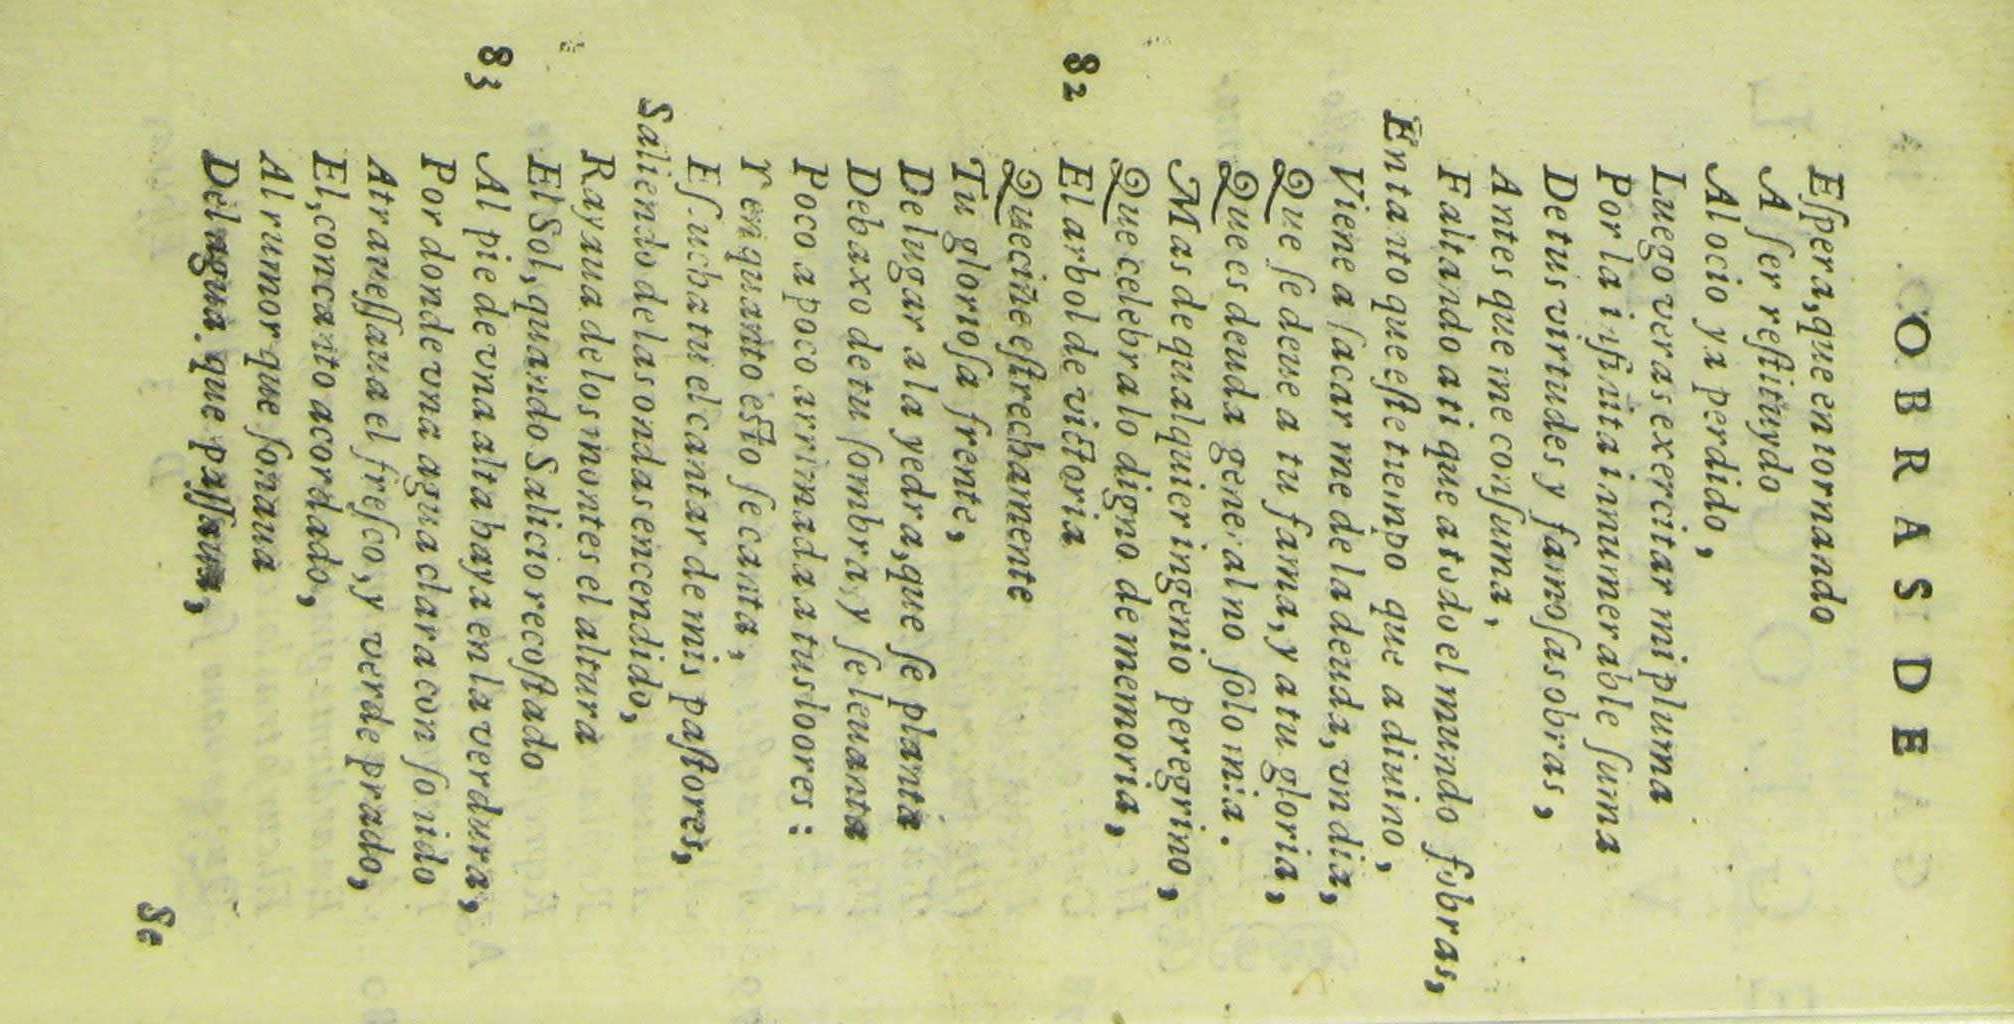 OBRAS DE
Eſpera, que en tornando
A ſer reſtituydo
Al ocio ya perdido,
Luego veras exercitar mi pluma
Por la infinita innumerable ſuma
De tus virtudes y famoſas obras,
Antes que me conſuma,
Faltando a ti que a todo el mundo ſobras,
En tanto que eſte tiempo que adiuino,
Viene a ſacarme de la deuda, vn dia,
Que ſe deue a tu fama, y a tu gloria,
Que es deuda general no ſolo mia.
Mas de qualquier ingenio peregrino,
Que celebra lo digno de memoria,
82 El arbol de victoria
Que ciñe eſtrechamente
Tu glorioſa frente,
De lugar a la yedra, que ſe planta
Debaxo de tu ſombra, y ſe leuanta
Poco a poco arrimada a tus loores:
Y en quanto eſto ſe canta,
Eſcucha tu el cantar de mis paſtores,
Saliendo de las ondas encendido,
Rayaua de los montes el altura
El Sol, quando Salicio recoſtado
83 Al pie de vna alta haya en la verdura,
Por donde vna agua clara con ſonido
Atraueſſaua el freſco, y verde prado,
El, con canto acordado,
Al rumor que ſonaua
Del agua que paſſaua,
Se